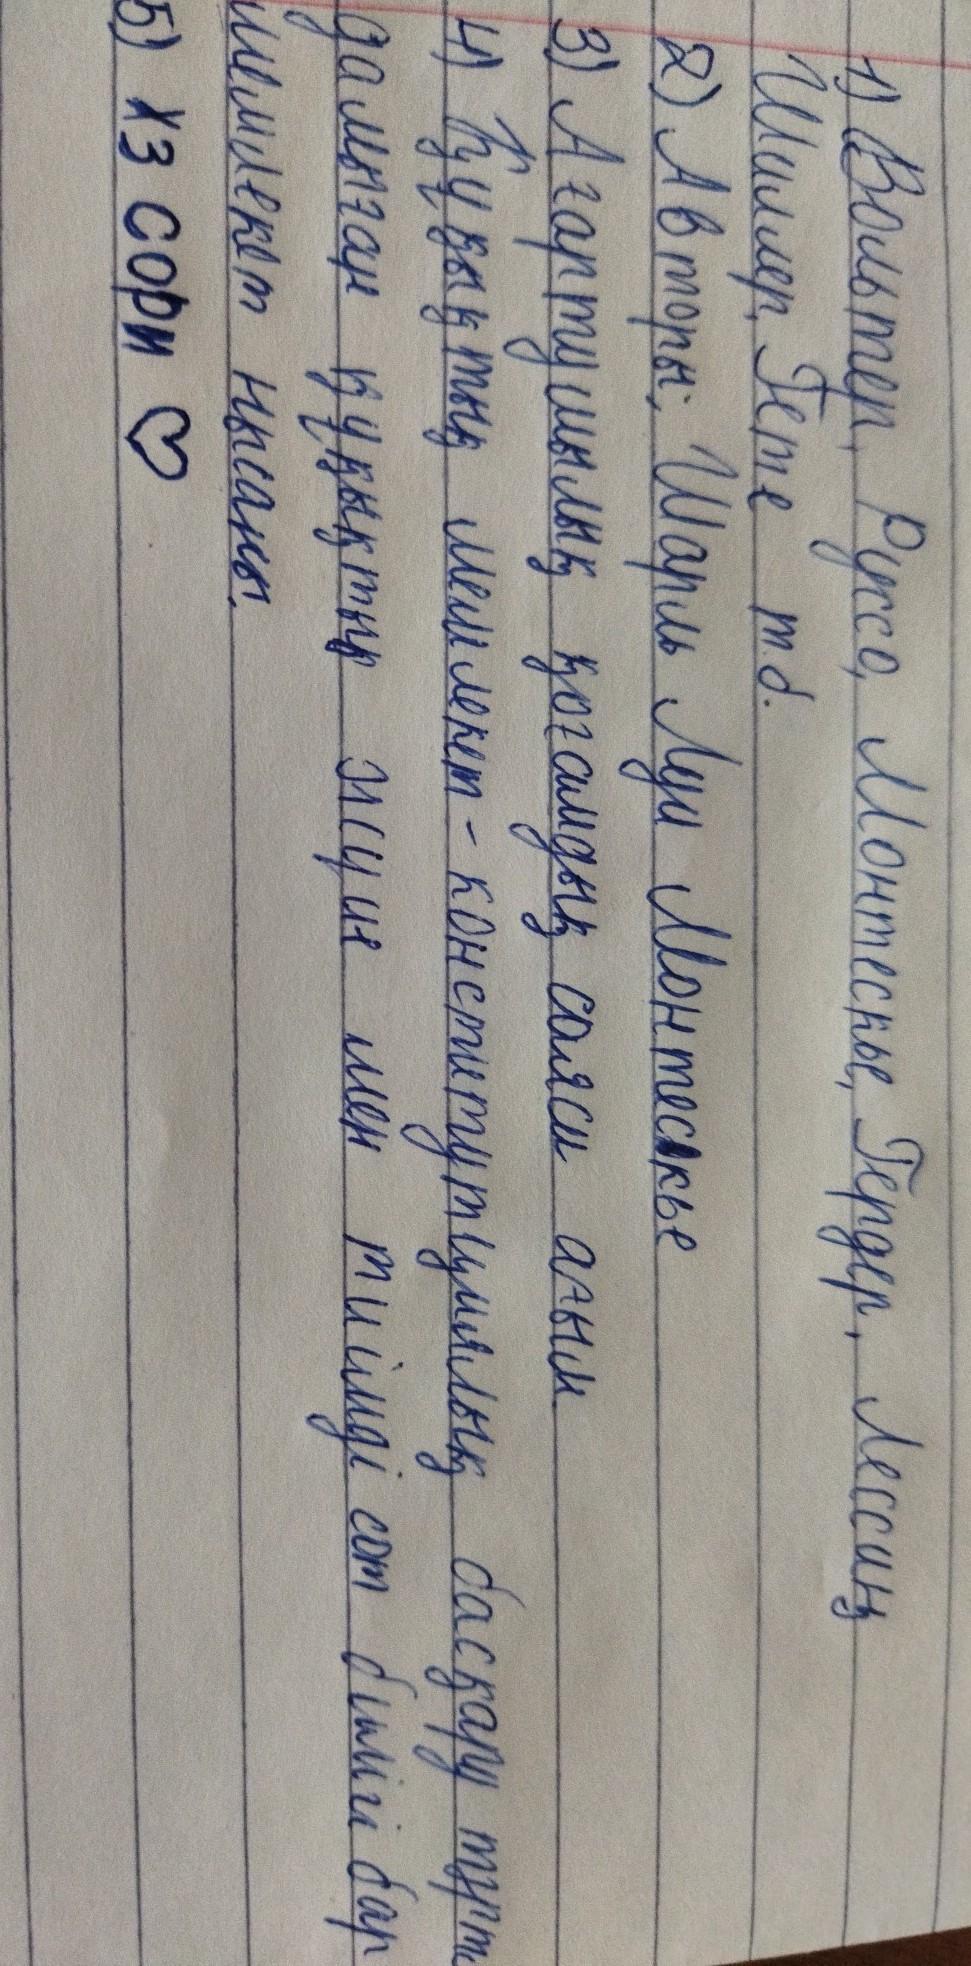 1) Вольтер, Руссо, Монтескье, Гердер, Лессинг
Шиллер, Гете т.б.
2) Авторы; Шарль Луи Монтескье
3) Ағартушылық қоғамдық саяси ағым
4) Құқықтық мемлекет - конституциялық басқару
дамыған құқықтық жүие мен тиімді сот билігі бар
мемлекет нысаны.
5) ХЗ СОРИ ♡